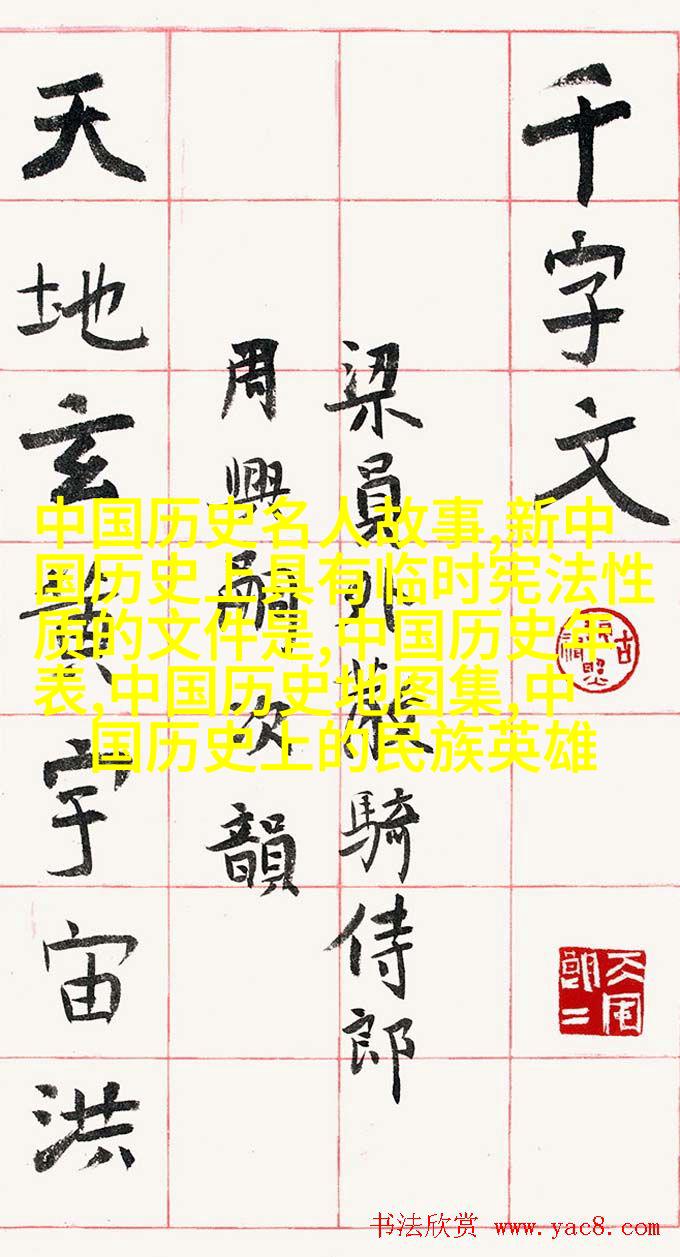 千字文
梁員外散騎侍郎
周興嗣次韻
天地玄黃宇宙洪
中国历史名人故事,新中
国历史上具有临时宪法性
质的文件是,中国历史年
表,中国历史地图集,中
国历史上的民族英雄
书法欣赏 www.yac8.com